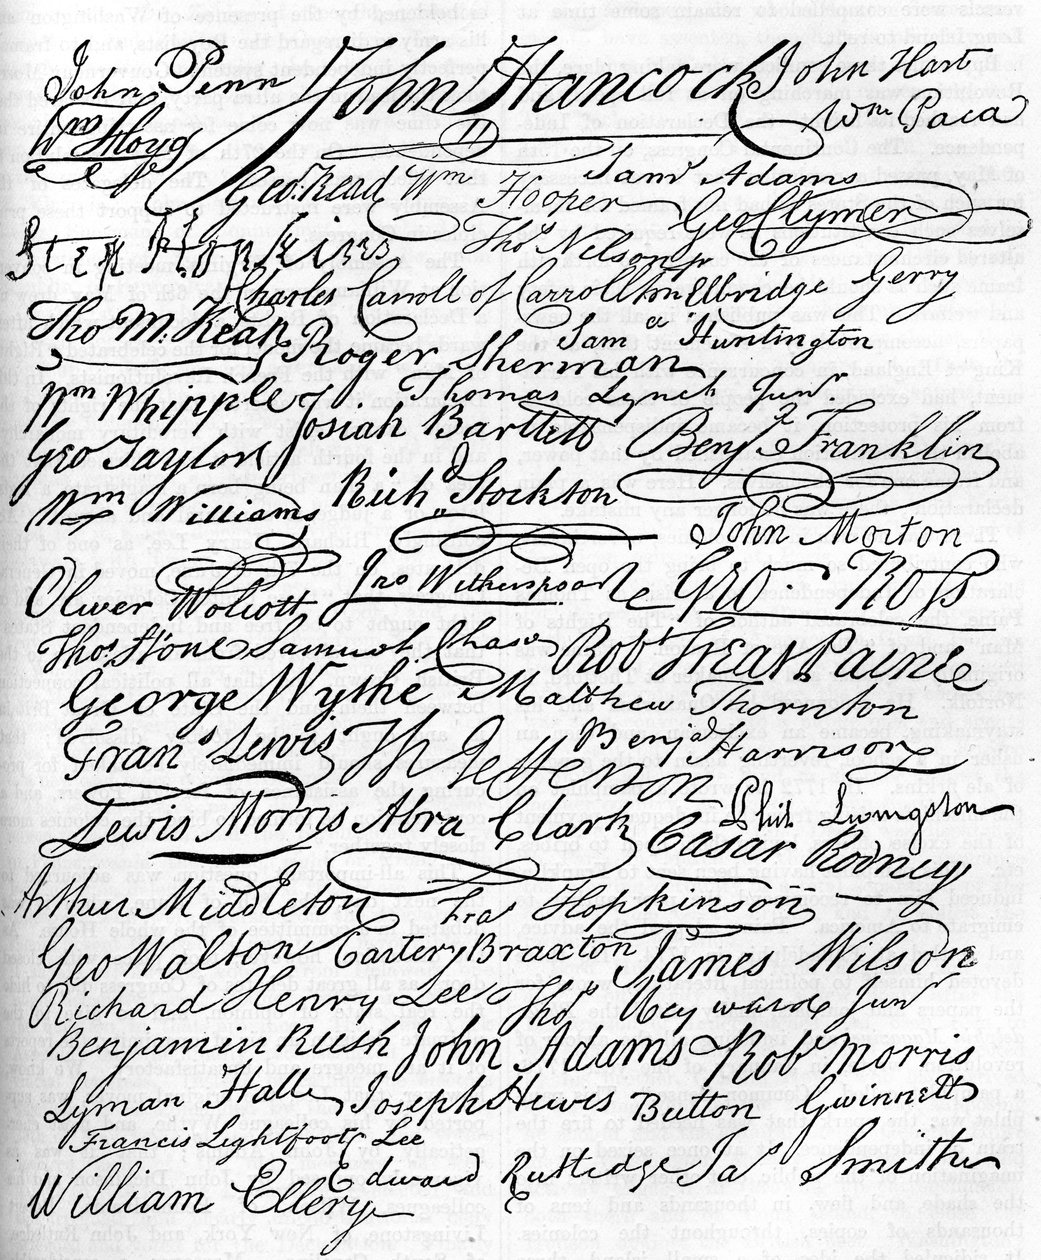 John Penn John Hancock John Hart
Wm Floyd Wm Paca
Geo. Read Wm Hooper Sam Adams
Step Hopkins Thos Nelson jr Geo Clymer
Charles Carroll of Carrollton Elbridge Gerry
Tho M. Kean Roger Sherman Sam Huntington
Wm Whipple Thomas Lynch Junr
Josiah Bartlett Benj Franklin
Geo Taylor Rich Stockton
Wm Williams John Morton
Oliver Wolcott Jno Witherspoon Geo. Ross
Thos Stone Samuel Chase Robt Treat Paine
George Wythe Matthew Thornton
Fran Lewis Th Jefferson Benj Harrison
Lewis Morris Abra Clark Phil. Livingston
Cæsar Rodney
Arthur Middleton Fras Hopkinson
Geo Walton Carter Braxton James Wilson
Richard Henry Lee Thos Heyward Junr
Benjamin Rush John Adams Robt Morris
Lyman Hall Joseph Hewes Button Gwinnett
Francis Lightfoot Lee
William Ellery Edward Rutledge Jas Smith